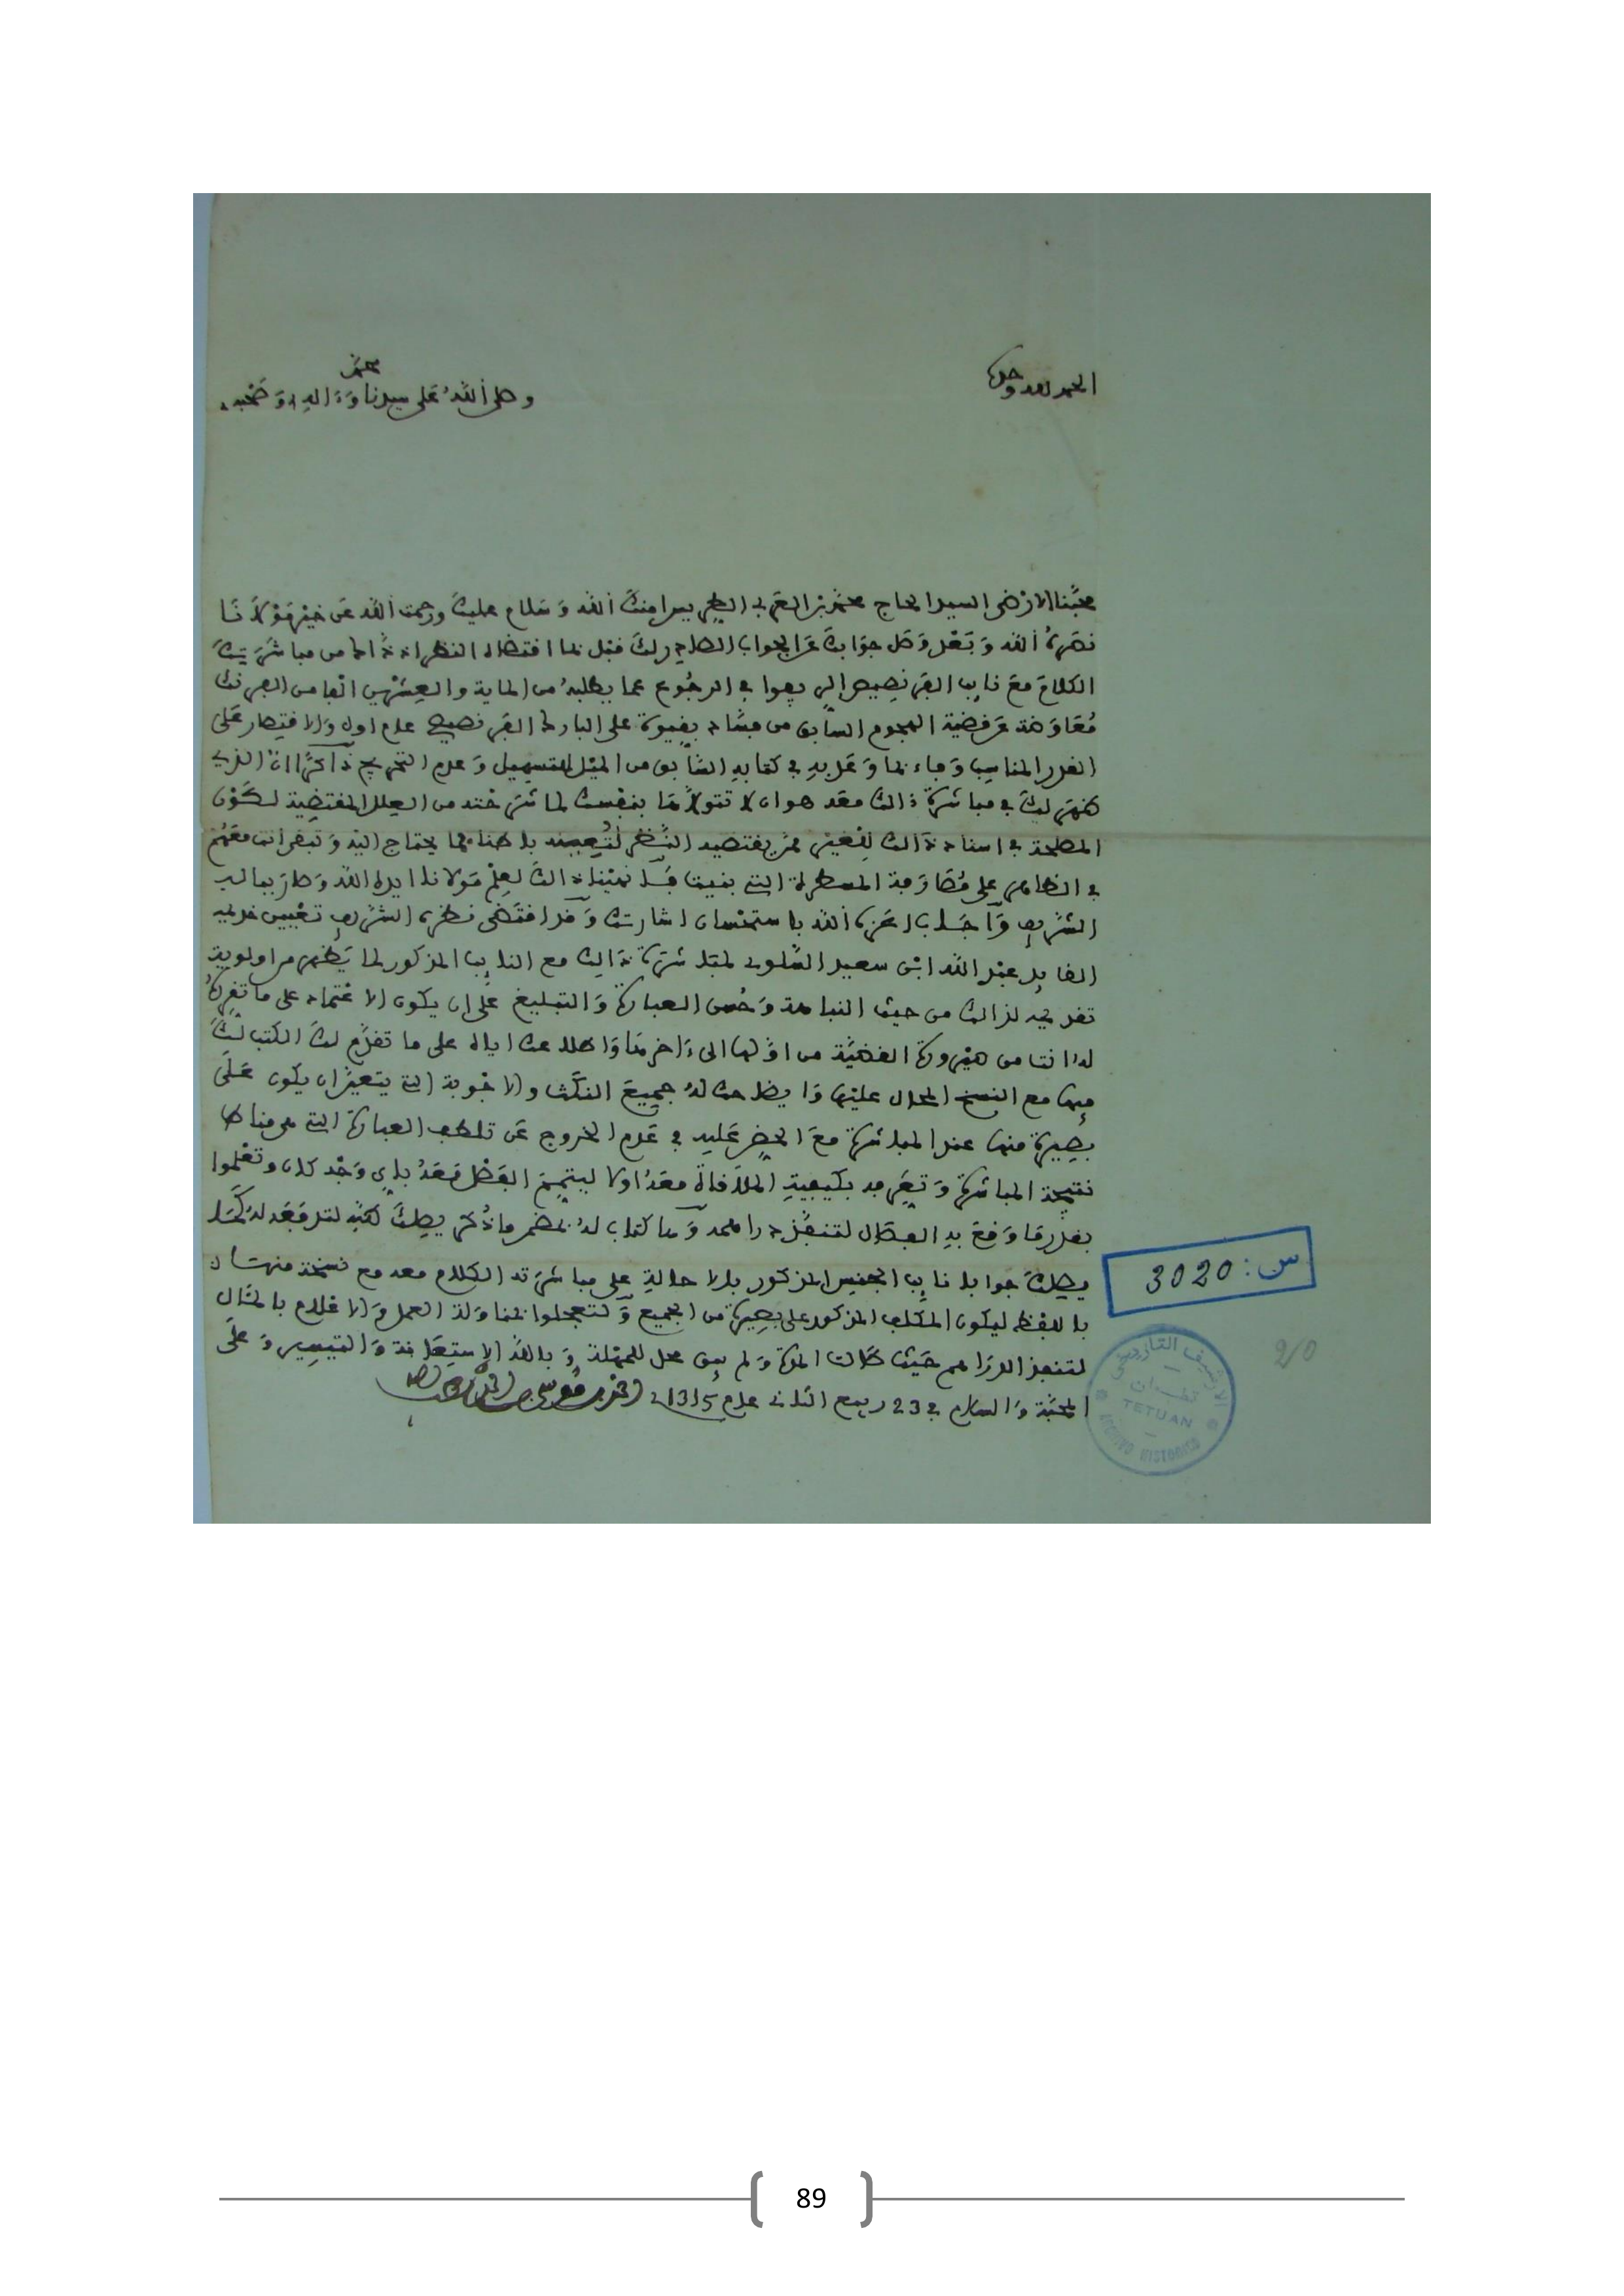 الحمد لله وحده
وصلى الله على سيدنا محمد وءاله وصحبه
محبنا الارضى السيد الحاج محمد بن العربي الطريس امنك الله وسلام عليك ورحمت الله عن خير مولانا
نصره الله وبعد وصل جوابك عن الجواب الصادر لك قبل بما اقتضاه النظر اذذاك من مباشرتك
الكلام مع نايب الفرنصيص في الرجوع عما يطلبه من الماية والعشرين الفا من الفرنك
معاوضة عن قضية الهجوم السابق من على البابور الفرنصيصي عام اول والاقتصار على
القدر المناسب وفاء بما وعد به في كتابه السابق من الميل للتسهيل وعدم التحريج ذاكرا ان الذي
ظهر لك في مباشرة ذلك معه هو ان لا تتولاها بنفسك لما شرحته من العلل المقتضية لكون
المصلحة في اسناد ذلك للغير ممن يقتضيه النظر لتعيينه بما يحتاج اليه وتبقى انت معهم
في الظاهر على المسطرة التي بنيت ذلك لعلم مولانا ايده الله وصار بباله
الشريف واجاب اعزه الله باستحسان اشارتك وقد اقتضى نظره الشريف تعيين خديمه
القايد عبد الله ابن سعيد السلوي لمباشرة ذلك مع النايب المذكور لما يظهر من اولوية
تقديمه لذلك من حيث النباهة وحسن العبارة والتبليغ على ان يكون الاعتماد على ما تقرره
له انت من القضية من اولها الى ءاخرها واطلاعك اياه على ما تقدم لك الكتب لك
فيها مع النسخ المحال عليها وايضاحك له جميع النكث والاجوبة التي يتعين ان يكون على
بصيرة منها عند المباشرة مع الحض عليه في عدم الخروج عن تلك العبارة التي هي مناط
نتيجة المباشرة وتعرفه بكيفية الملاقاة معه اولا ليتمم الغرض معه باي وجه كان وتعلموا
بقدر ما وقع به الفصال لتنفذ دراهمه وها كتاب له بمضمن ما ذكر يصلك طيه لتدفعه له كما
يصلك جواب نايب الجنس المذكور بالاحالة على مباشرته الكلام معه مع نسخة منه
باللفظ ليكون المكلف المذكور على بصيرة من الجميع ولتعجلوا بمناولة العمل والاعلام بالمئال
لتنفذ الدراهم حيث طالت المدة ولم يبق محل للمهلة وبالله الاستعانة والتيسير وعلى
المحبة والسلام في 23 ربيع الثاني عام 1315 احمد بن موسى
س: 3020
2/0
الارشيف التاريخي
تطوان
TETUAN
ARCHIVO HISTORICO
89